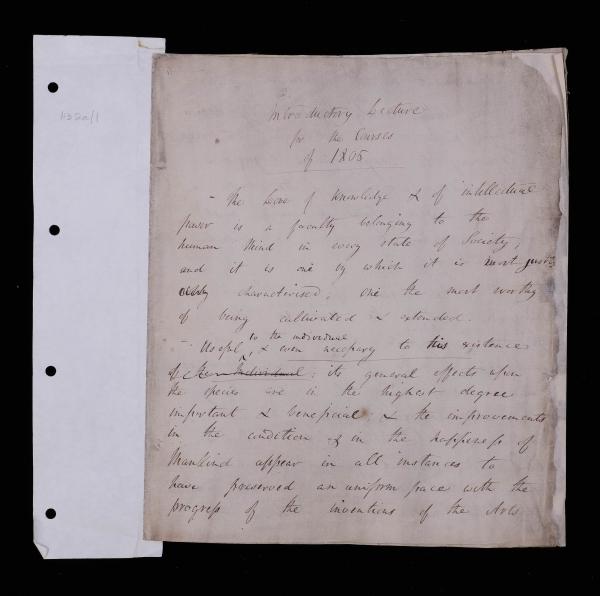 1322a/1
Introductory Lecture
for the Courses
of 1805
- The Love of Knowledge & of intellectual
power is a faculty belonging to the
human Mind in every state of Society;
and it is one by which it is most justly
characterised; one the most worthy
of being cultivated & extended.
to the individual
- Useful & even necessary to his existence
of the Individual; its general effects upon
the species are in the highest degree
important & beneficial, & the improvements
in the condition & in the happiness of
Mankind appear in all instances to
have preserved an uniform pace with the
progress of the inventions of the Arts